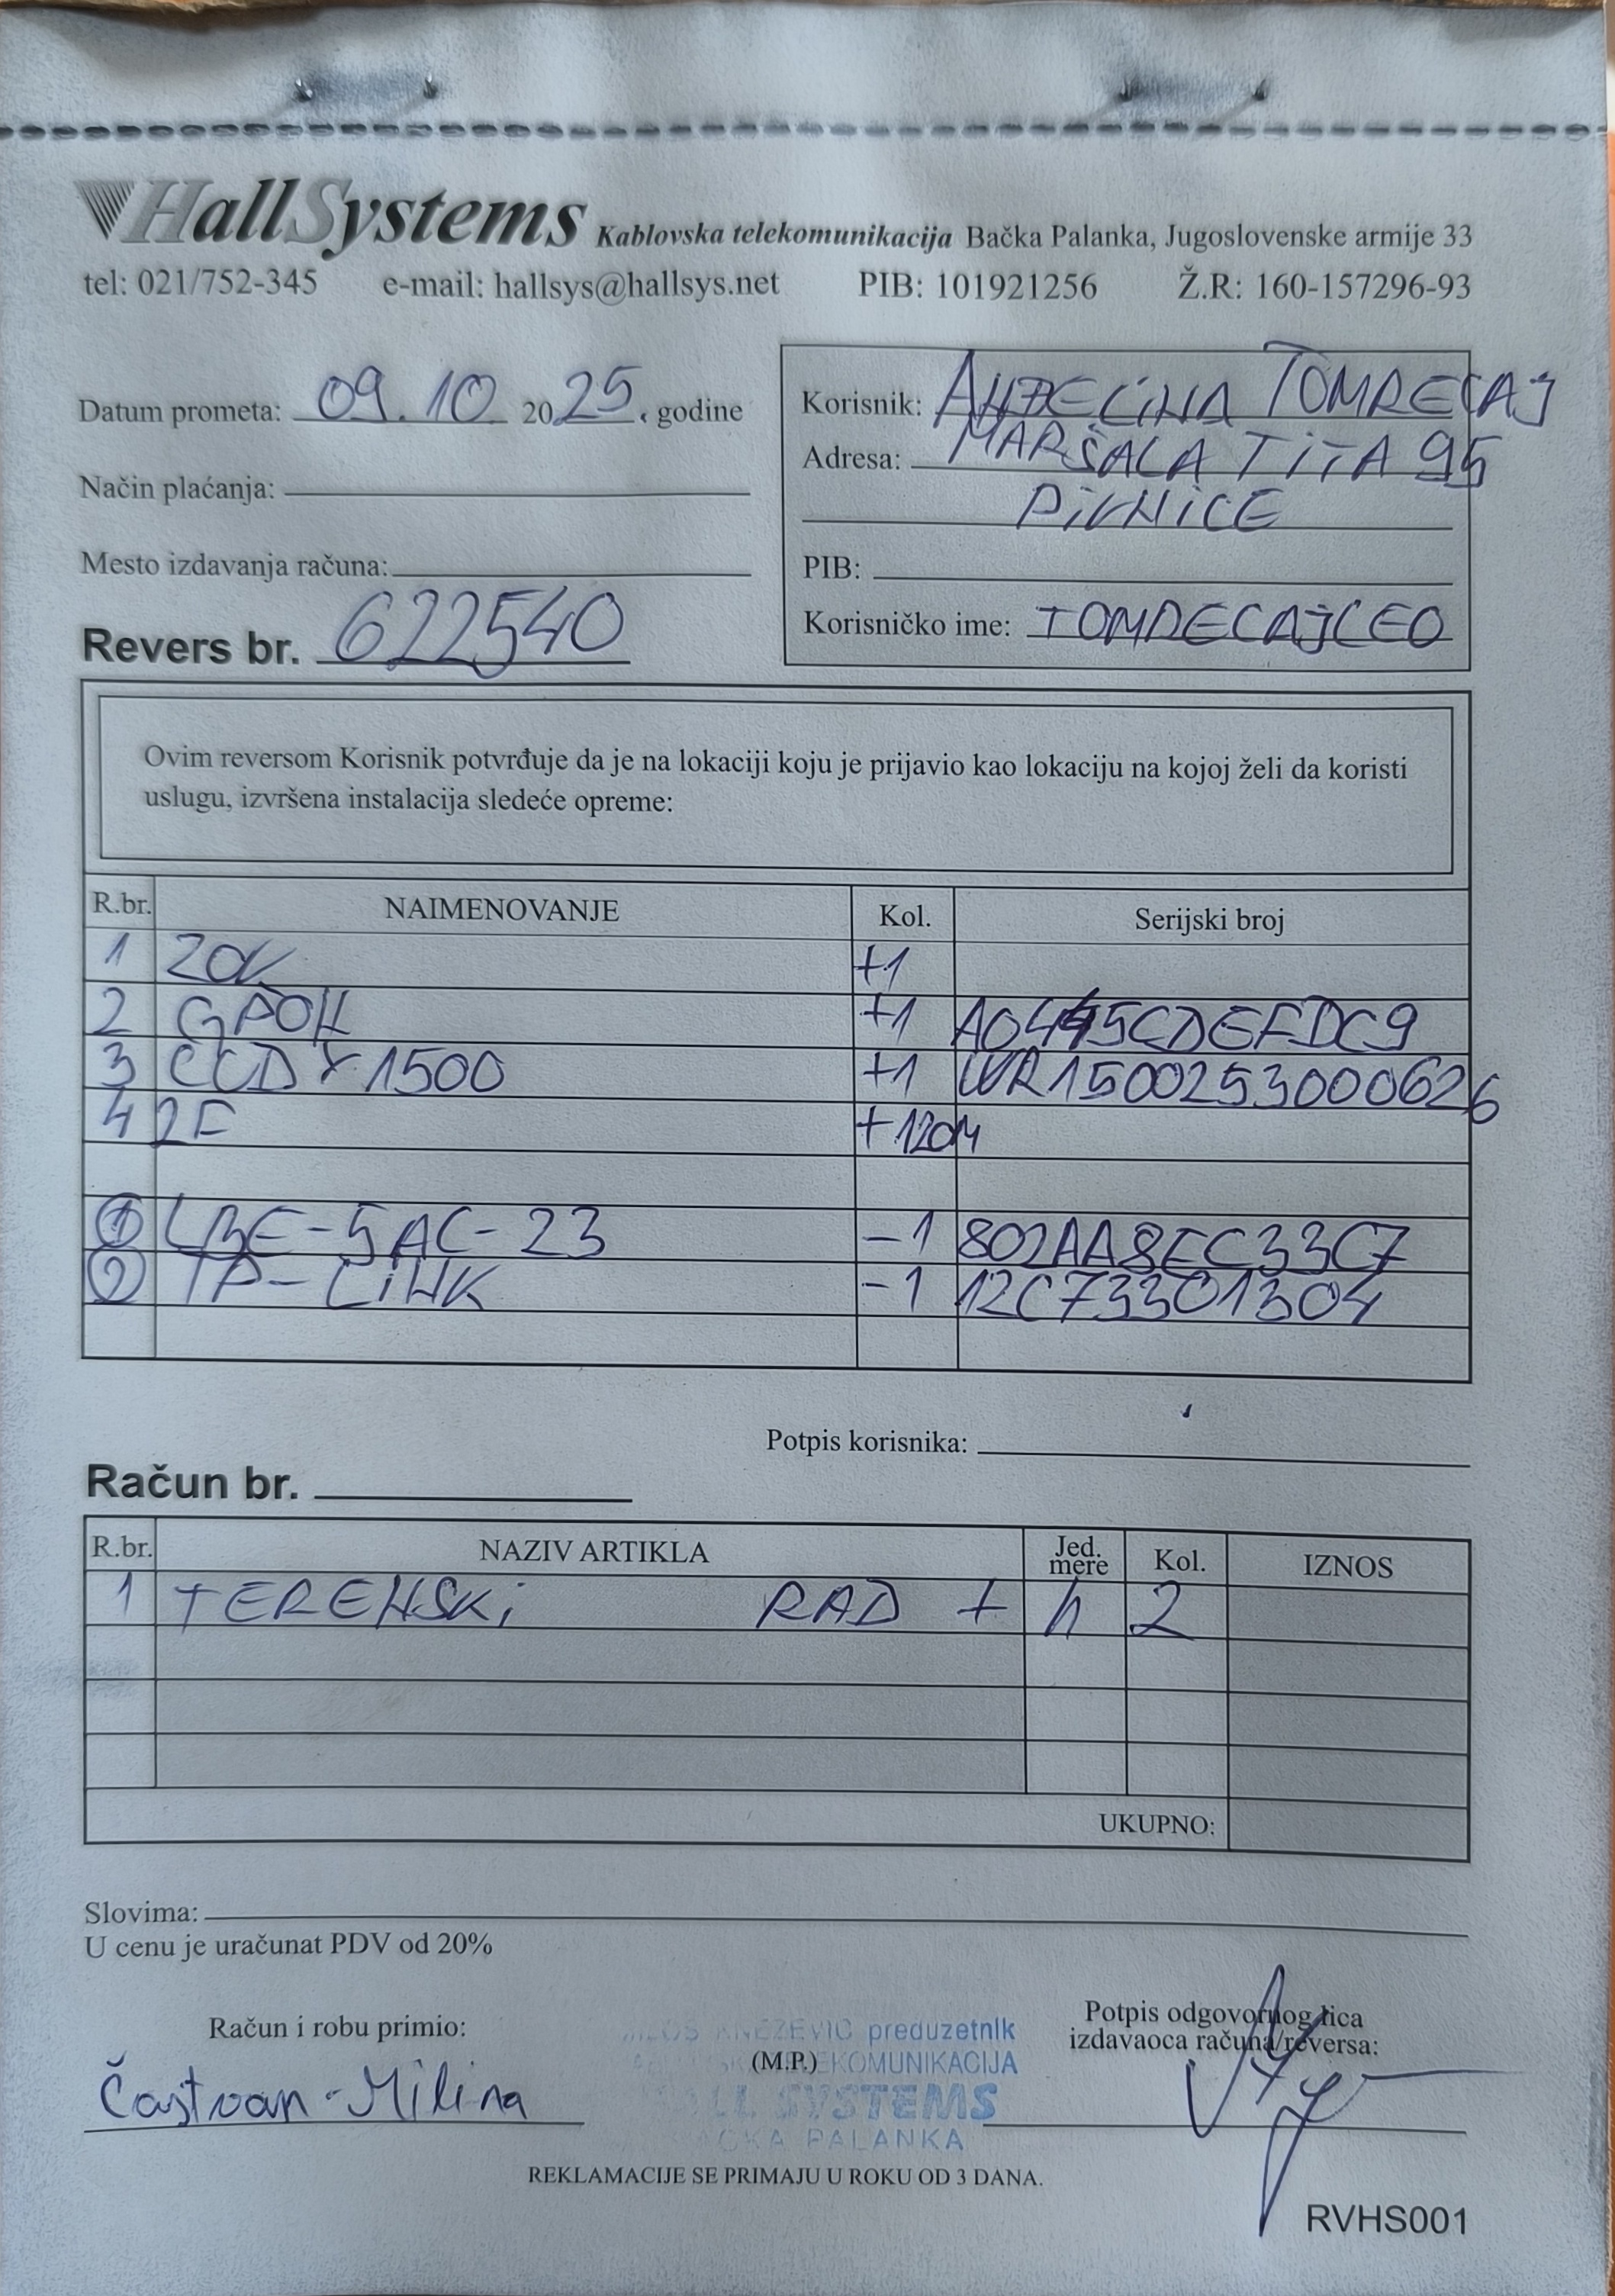 HallSystems Kablovska telekomunikacija Bačka Palanka, Jugoslovenske armije 33
tel: 021/752-345 e-mail: hallsys@hallsys.net PIB: 101921256 Ž.R: 160-157296-93
Datum prometa: 09.10 2025. godine
Način plaćanja:
Mesto izdavanja računa:
Revers br. 622540
Korisnik: TOMDECAJ
Adresa: MARŠALA TITA 95
PIVNICE
PIB:
Korisničko ime: TOMDECAJLEO
Ovim reversom Korisnik potvrđuje da je na lokaciji koju je prijavio kao lokaciju na kojoj želi da koristi
uslugu, izvršena instalacija sledeće opreme:
R.br. NAIMENOVANJE Kol. Serijski broj
1 ZOK +1
2 GPON +1
3 1500 +1 WR1500253000626
4 2F +120M
1 LBE-5AC-23 -1 802AA8EC33C7
2 TP-LINK -1 12C73301304
Potpis korisnika:
Račun br.
R.br. NAZIV ARTIKLA Jed. mere Kol. IZNOS
1 TERENSKI RAD + h 2
UKUPNO:
Slovima:
U cenu je uračunat PDV od 20%
Račun i robu primio:
Častvan-Milina
(M.P.)
preduzetnik
KOMUNIKACIJA
SYSTEMS
PALANKA
Potpis odgovornog lica
izdavaoca računa/reversa:
REKLAMACIJE SE PRIMAJU U ROKU OD 3 DANA.
RVHS001